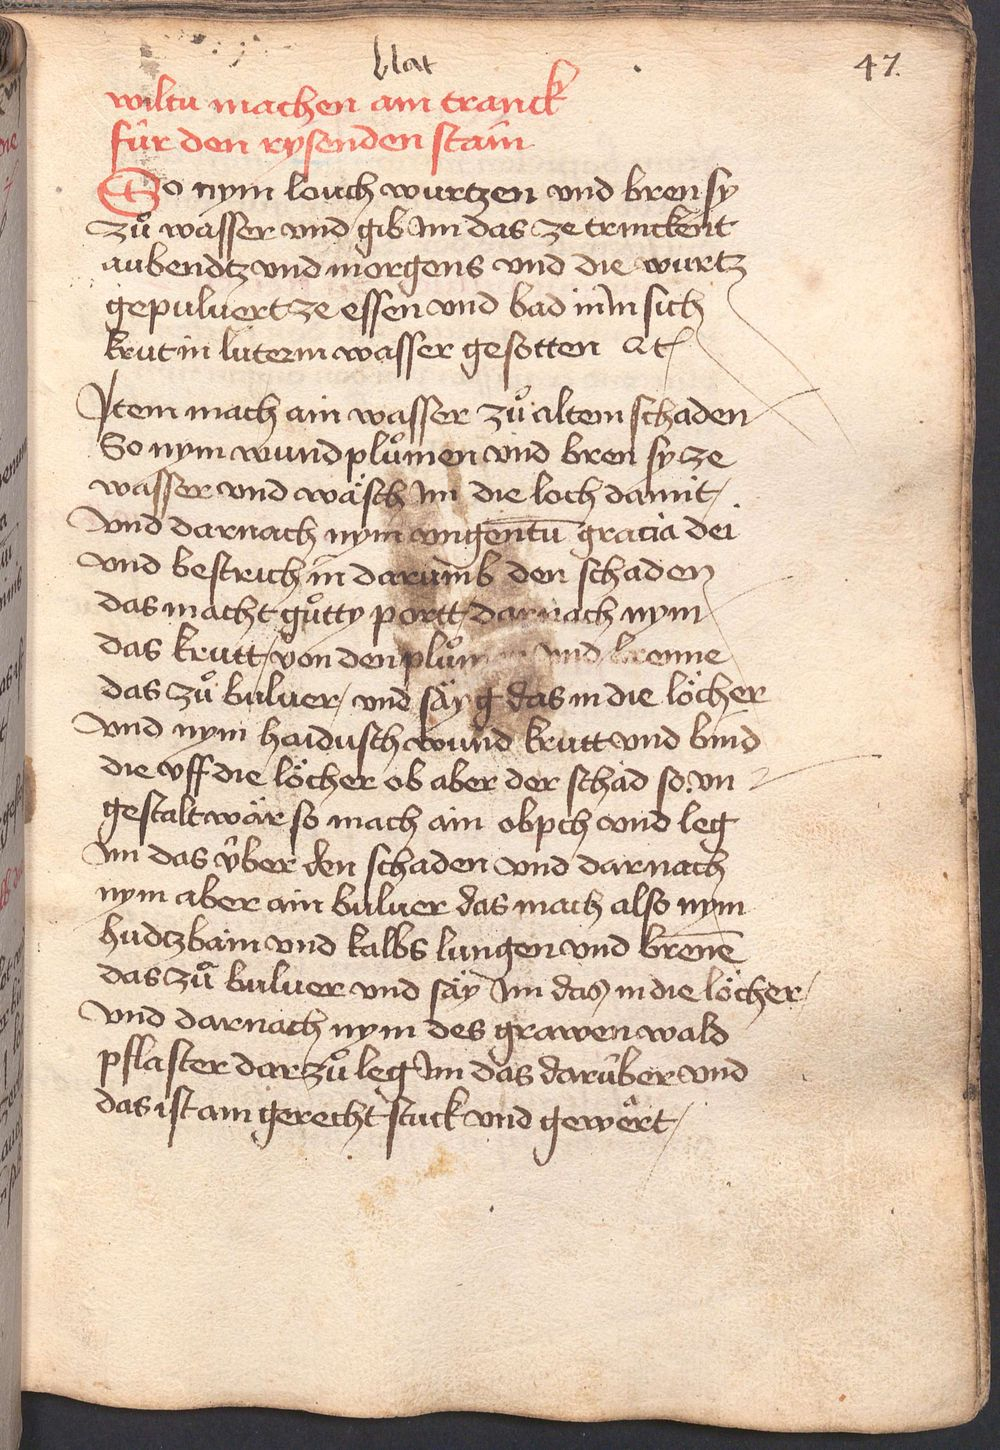 blat
47.
wiltu machen ain tranck
für den rysenden stain
So nym louch wurtzen vnd bren sy
zů wasser vnd gib Im das ze trinckent
aubendtz vnd morgens vnd die wurtz
gepuluert ze essen vnd bad in im sich
krut in luterm wasser gesotten etc
Item mach ain wasser zů altem schaden
So nym wund plůmen vnd bren sy ze
wasser vnd wäsch Im die loch damit /
Vnd darnach nym vngentū gracia dei
vnd bestrich in darumb den schaden
das macht gůtty portt / darnach nym
das krutt / von den vnd brenne
das zů buluer / vnd säy g das in die löcher
Vnd nym haidusch wund krutt vnd bind
die vff die löcher ob aber der schad so vn
gestalt wär so mach ain obpch vnd leg
Im das über den schaden vnd darnach
nym aber ain buluer das mach also nym
hudtzbain vnd kalbs lungen vnd breñe
das zů buluer vnd säy Im das in die löcher /
Vnd darnach nym des grawen wald
pflaster dar zů leg Im das darüber vnd
das ist ain gerecht stuck vnd gewert /